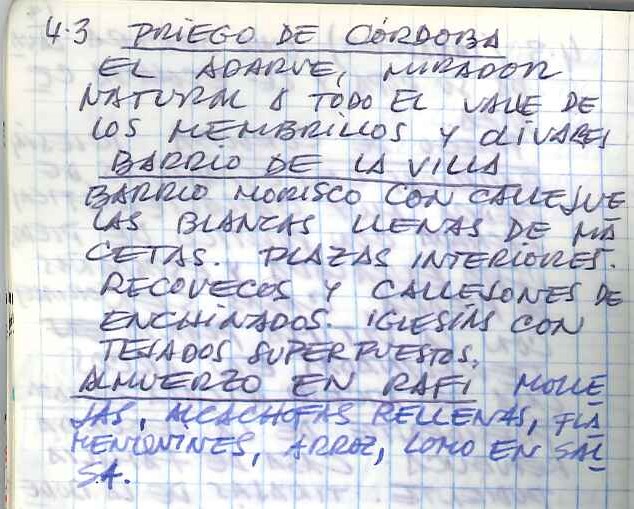 4.3 PRIEGO DE CÓRDOBA
EL ADARVE, MIRADOR
NATURAL A TODO EL VALLE DE
LOS MEMBRILLOS Y OLIVARES
BARRIO DE LA VILLA
BARRIO MORISCO CON CALLEJUE
LAS BLANCAS LLENAS DE MA
CETAS. PLAZAS INTERIORES.
RECOVECOS Y CALLEJONES DE
ENCHINADOS. IGLESIAS CON
TEJADOS SUPERPUESTOS.
ALMUERZO EN RAFI MOLLE
JAS, ALCACHOFAS RELLENAS, FLA
MENQUINES, ARROZ, LOMO EN SAL
SA.